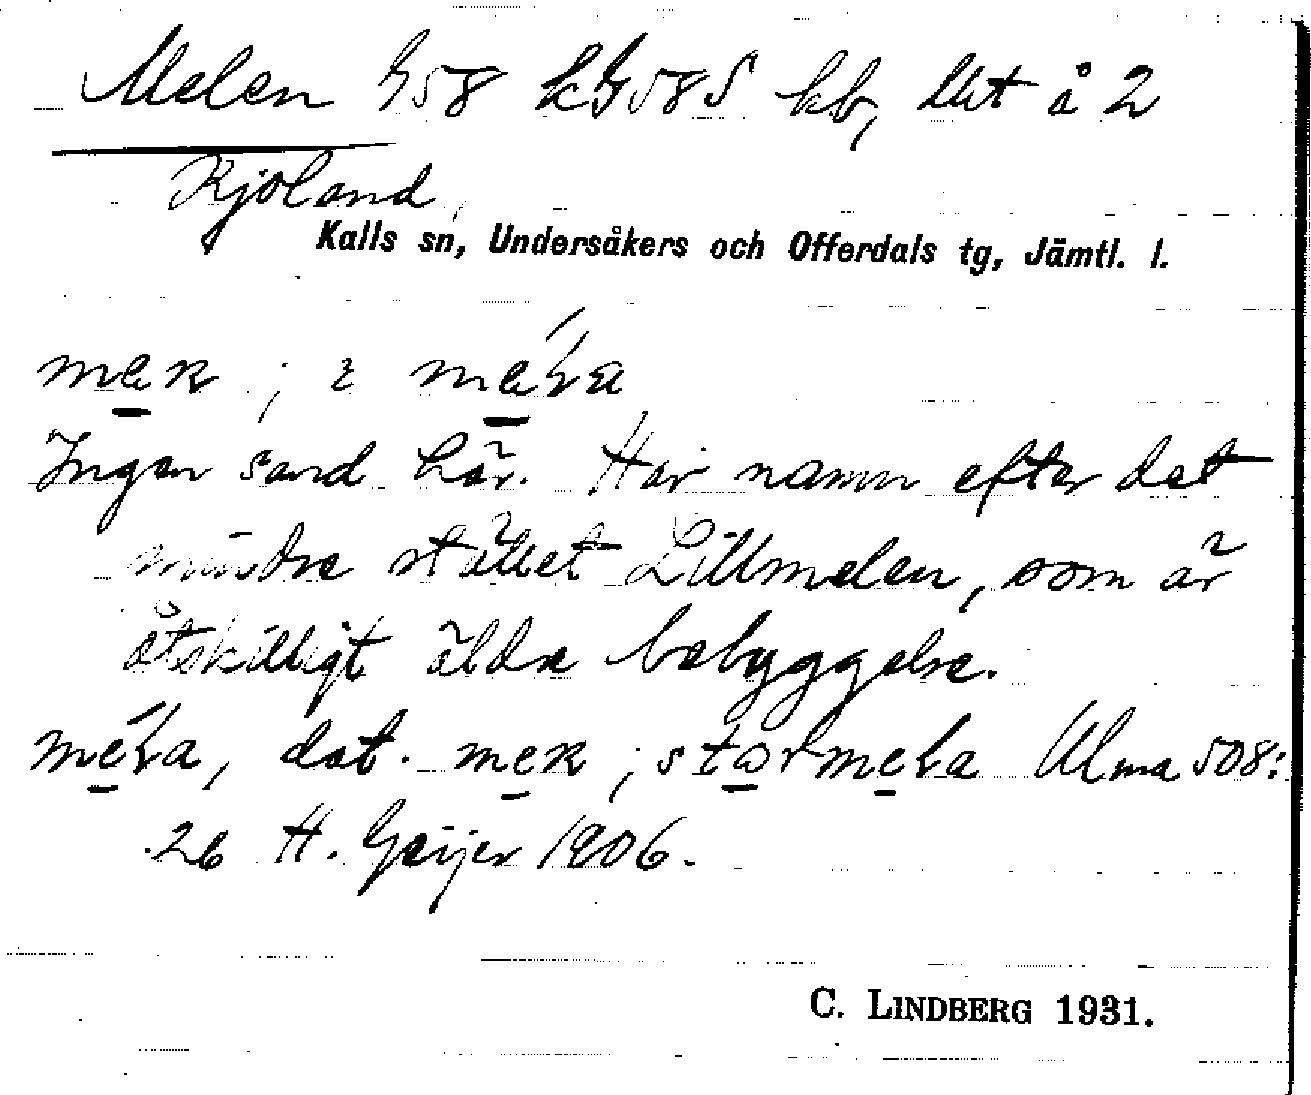 Melen G58 kG58S kb, lllt å 2
Kjoland
Kalls sn, Undersåkers och Offerdals tg, Jämtl. l.
men ; i meLa
Ingen sand här. Har namn efter det
mindre stället Lillmelen, som är
åtskilligt äldre bebyggelse.
meLa, dat. men ; stormeLa Ulma 508:
26 H. Geijer 1906.
C. LINDBERG 1931.